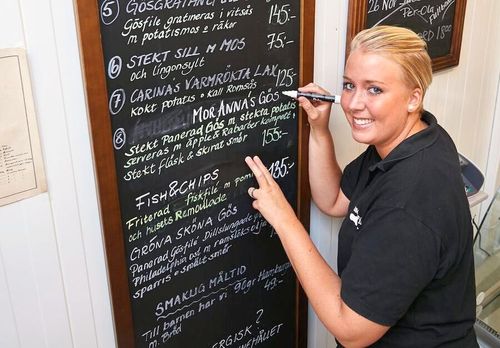 5 GÖSGRATÄNG
Gösfilé gratineras i vitsås 145:-
m potatismos o räkor
6 STEKT SILL M MOS 75:-
och lingonsylt
7 CARINAS VARMRÖKTA LAX 125
kokt potatis o kall Romsås
MOR ANNAS GÖS
8 Stekt Panerad Gös m stekta potatis
serveras m äpple & Rabarber kompott 155:-
stekt fläsk & skirat smör
FISH & CHIPS 135:-
Friterad fiskfilé m pom
och husets Remoulade
GRÖNA SKÖNA GÖS
Panerad Gösfilé Dillslungade
Philadelphia o m ramslöks
sparris o smält smör
SMAKLIG MÅLTID
Till barnen har vi 90gr Hamburg
m. Bröd 49:-
ERGISK?
NEHÅLLET
26 NOV